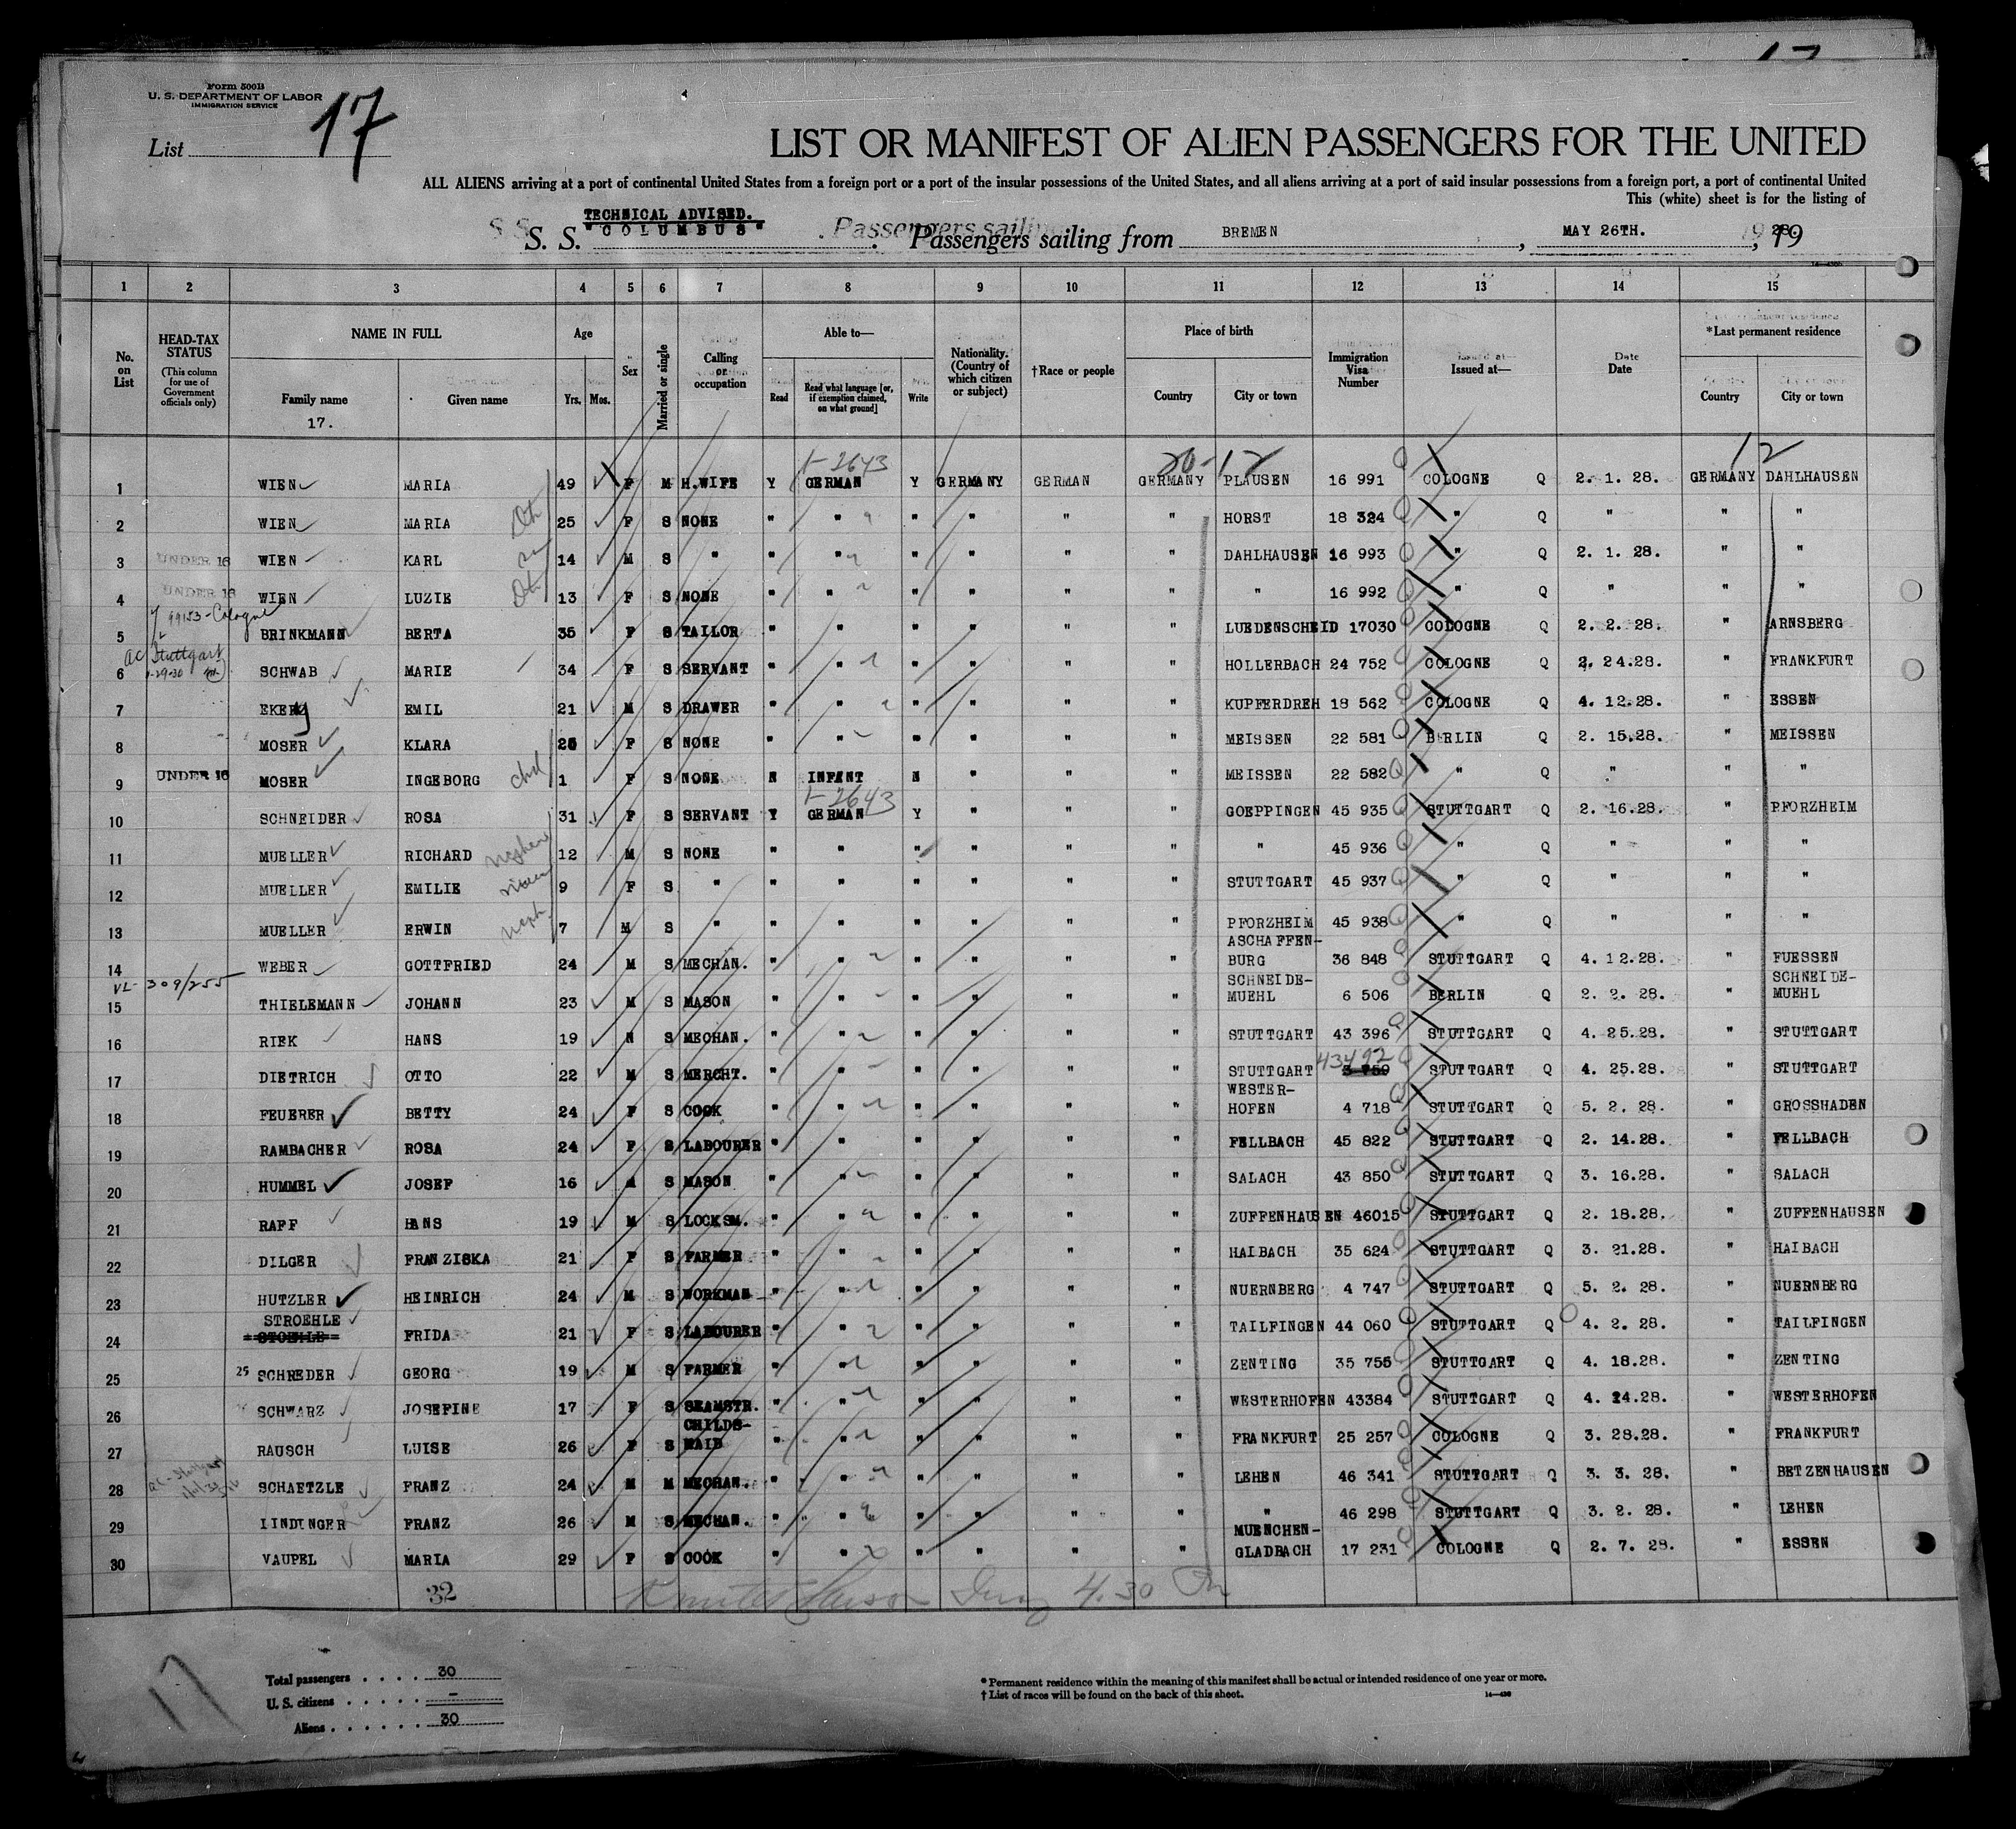 Form 500B
U. S. DEPARTMENT OF LABOR
IMMIGRATION SERVICE
List 17
LIST OR MANIFEST OF ALIEN PASSENGERS FOR THE UNITED
ALL ALIENS arriving at a port of continental United States from a foreign port or a port of the insular possessions of the United States, and all aliens arriving at a port of said insular possessions from a foreign port, a port of continental United
This (white) sheet is for the listing of
TECHNICAL ADVISED.
S. S. "COLUMBUS" Passengers sailing from BREMEN, MAY 26TH., 1928.
1 2 3 4 5 6 7 8 9 10 11 12 13 14 15
No. on List
HEAD-TAX STATUS (This column for use of Government officials only)
NAME IN FULL
Family name Given name
17.
Age Yrs. Mos.
Sex
Married or single
Calling or occupation
Able to—
Read Read what language [or, if exemption claimed, on what ground] Write
Nationality. (Country of which citizen or subject)
†Race or people
Place of birth
Country City or town
Immigration Visa Number
Issued at—
Date
*Last permanent residence
Country City or town
1-2643 20-12 12
1 WIEN MARIA 49 F M H.WIFE Y GERMAN Y GERMANY GERMAN GERMANY PLAUSEN 16 991 COLOGNE Q 2. 1. 28. GERMANY DAHLHAUSEN
2 WIEN MARIA 25 F S NONE " " " " " " HORST 18 324 " Q " " "
3 UNDER 16 WIEN KARL 14 M S " " " " " " " DAHLHAUSEN 16 993 " Q 2. 1. 28. " "
4 UNDER 16 WIEN LUZIE 13 F S NONE " " " " " " " 16 992 " Q " " "
99153-Cologne
5 BRINKMANN BERTA 35 F S TAILOR " " " " " " LUEDENSCHEID 17030 COLOGNE Q 2. 2. 28. " ARNSBERG
AC Stuttgart
6 SCHWAB MARIE 34 F S SERVANT " " " " " " HOLLERBACH 24 752 COLOGNE Q 2. 24.28. " FRANKFURT
7 EMIL 21 M S DRAWER " " " " " " KUPFERDREH 18 562 COLOGNE Q 4. 12.28. " ESSEN
8 MOSER KLARA F S NONE " " " " " " MEISSEN 22 581 BERLIN Q 2. 15.28. " MEISSEN
9 UNDER 16 MOSER INGEBORG chd 1 F S NONE N INFANT N " " " MEISSEN 22 582 " Q " " "
1-2643
10 SCHNEIDER ROSA 31 F S SERVANT Y GERMAN Y " " " GOEPPINGEN 45 935 STUTTGART Q 2. 16.28. " PFORZHEIM
11 MUELLER RICHARD nephew 12 M S NONE " " " " " " " 45 936 " Q " " "
12 MUELLER EMILIE niece 9 F S " " " " " " " STUTTGART 45 937 " Q " " "
13 MUELLER ERWIN neph. 7 M S " " " " " " " PFORZHEIM 45 938 " Q " " "
14 WEBER GOTTFRIED 24 M S MECHAN. " " " " " " ASCHAFFEN-
BURG 36 848 STUTTGART Q 4. 12.28. " FUESSEN
VL- 309/255
15 THIELEMANN JOHANN 23 M S MASON " " " " " " SCHNEIDE-
MUEHL 6 506 BERLIN Q 2. 2. 28. " SCHNEIDE-
MUEHL
16 RIEK HANS 19 M S MECHAN. " " " " " " STUTTGART 43 396 STUTTGART Q 4. 25.28. " STUTTGART
17 DIETRICH OTTO 22 M S MERCHT. " " " " " " STUTTGART 43492 STUTTGART Q 4. 25.28. " STUTTGART
18 FEUERER BETTY 24 F S COOK " " " " " " WESTER-
HOFEN 4 718 STUTTGART Q 5. 2. 28. " GROSSHADEN
19 RAMBACHER ROSA 24 F S LABOURER " " " " " " FELLBACH 45 822 STUTTGART Q 2. 14.28. " FELLBACH
20 HUMMEL JOSEF 16 M S MASON " " " " " " SALACH 43 850 STUTTGART Q 3. 16.28. " SALACH
21 RAFF HANS 19 M S LOCKSM. " " " " " " ZUFFENHAUSEN 46015 STUTTGART Q 2. 18.28. " ZUFFENHAUSEN
22 DILGER FRANZISKA 21 F S FARMER " " " " " " HAIBACH 35 624 STUTTGART Q 3. 21.28. " HAIBACH
23 HUTZLER HEINRICH 24 M S WORKMAN " " " " " " NUERNBERG 4 747 STUTTGART Q 5. 2. 28. " NUERNBERG
24 STROEHLE STOEHLE FRIDA 21 F S LABOURER " " " " " " TAILFINGEN 44 060 STUTTGART Q 4. 2. 28. " TAILFINGEN
25 25 SCHREDER GEORG 19 M S FARMER " " " " " " ZENTING 35 755 STUTTGART Q 4. 18.28. " ZENTING
26 SCHWARZ JOSEFINE 17 F S SEAMSTR. " " " " " " WESTERHOFEN 43384 STUTTGART Q 4. 24.28. " WESTERHOFEN
27 RAUSCH LUISE 26 F S CHILDS-
MAID " " " " " " FRANKFURT 25 257 COLOGNE Q 3. 28.28. " FRANKFURT
28 SCHAETZLE FRANZ 24 M M MECHAN. " " " " " " LEHEN 46 341 STUTTGART Q 3. 3. 28. " BETZENHAUSEN
29 LINDINGER FRANZ 26 M S MECHAN. " " " " " " " 46 298 STUTTGART Q 3. 2. 28. " LEHEN
30 VAUPEL MARIA 29 F S COOK " " " " " " MUENCHEN-
GLADBACH 17 231 COLOGNE Q 2. 7. 28. " ESSEN
32
4.30
17
Total passengers . . . . . 30
U. S. citizens . . . . . –
Aliens . . . . . . 30
* Permanent residence within the meaning of this manifest shall be actual or intended residence of one year or more.
† List of races will be found on the back of this sheet.